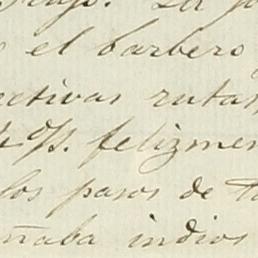 el barbero
ectivas rutas
felizmen
los pasos de
ñaba indios